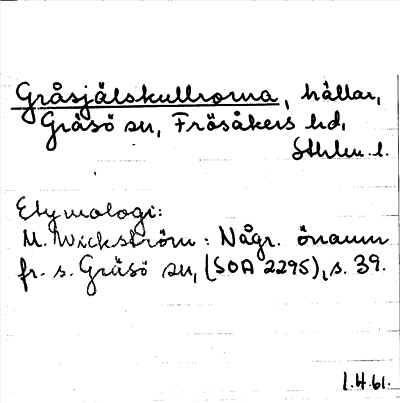 Gråsjälskullrorna, hällar,
Gräsö sn, Frösåkers hd,
Sthlm l.
Etymologi:
M. Wickström: Någr. önamn
fr. s. Gräsö sn, (SOA 2295), s. 39.
I.H.61.